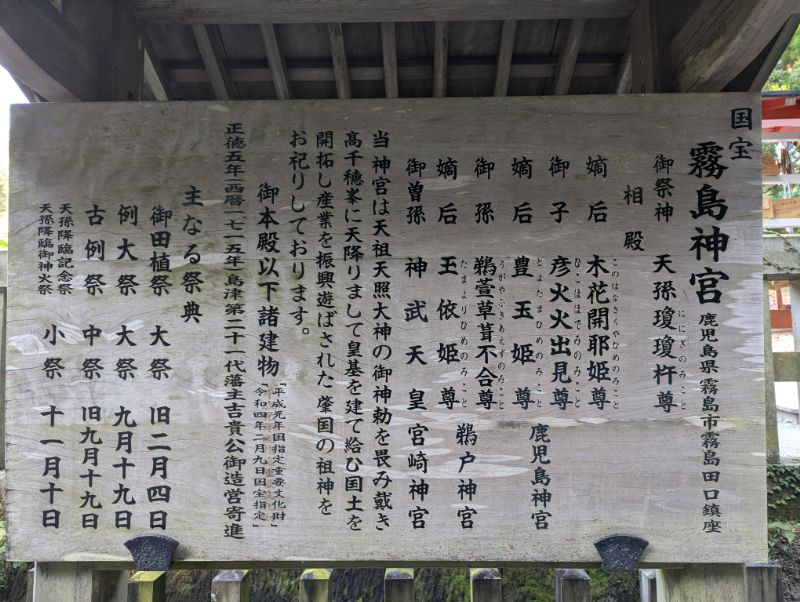 国宝
霧島神宮 鹿児島県霧島市霧島田口鎮座
御祭神 天孫瓊瓊杵尊
ににぎのみこと
相殿
嫡后 木花開耶姫尊
このはなさくやひめのみこと
御子 彦火火出見尊
ひこほほでみのみこと
鹿児島神宮
嫡后 豊玉姫尊
とよたまひめのみこと
御孫 鵜萱草葺不合尊
うがやふきあえずのみこと
鵜戸神宮
嫡后 玉依姫尊
たまよりひめのみこと
御曽孫 神武天皇 宮崎神宮
当神宮は天祖天照大神の御神勅を畏み戴き
高千穂峯に天降りまして皇基を建て給む国土を
開拓し産業を振興遊ばされた肇国の祖神を
お祀りしております。
御本殿以下諸建物
「平成元年国指定重要文化財」
「令和四年二月九日国宝指定」
正徳五年(西暦一七一五年)島津第二十一代藩主吉貴公御造営寄進
主なる祭典
御田植祭 大祭 旧二月四日
例大祭 大祭 九月十九日
古例祭 中祭 旧九月十九日
天孫降臨記念祭
天孫降臨御神火祭
小祭 十一月十日